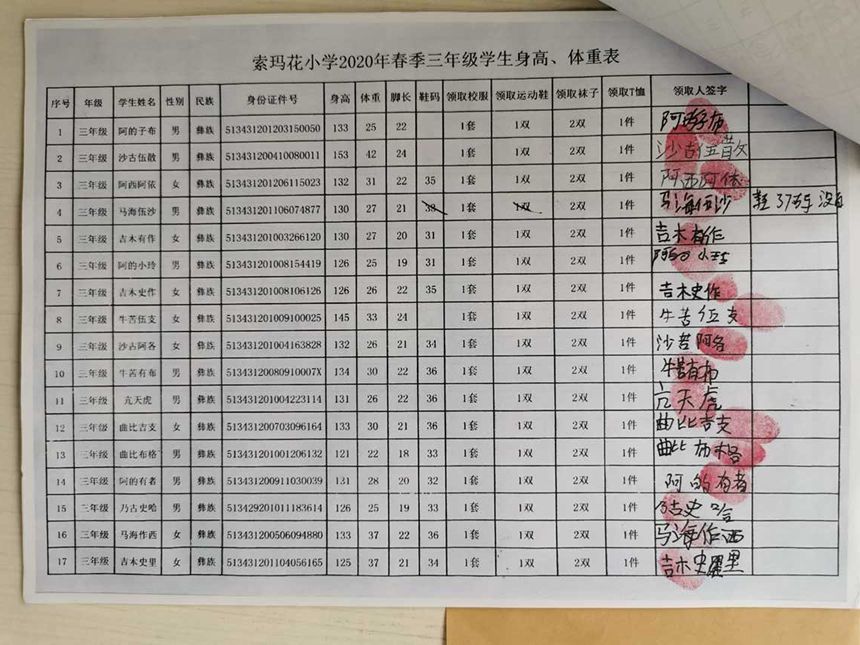 索玛花小学2020年春季三年级学生身高、体重表
序号 年级 学生姓名 性别 民族 身份证件号 身高 体重 脚长 鞋码 领取校服 领取运动鞋 领取袜子 领取T恤 领取人签字
1 三年级 阿的子布 男 彝族 513431201203150050 133 25 22 1套 1双 2双 1件 阿的子布
2 三年级 沙古伍散 男 彝族 513431200410080011 153 42 24 1套 1双 2双 1件 沙古伍散
3 三年级 阿西阿依 女 彝族 513431201206115023 132 31 22 35 1套 1双 2双 1件 阿西阿依
4 三年级 马海伍沙 男 彝族 513431201106074877 130 27 21 1套 1双 2双 1件 马海伍沙 鞋37码 没有
5 三年级 吉木有作 女 彝族 513431201003266120 130 27 20 31 1套 1双 2双 1件 吉木有作
6 三年级 阿的小玲 男 彝族 513431201008154419 126 25 19 31 1套 1双 2双 1件 阿的小玲
7 三年级 吉木史作 女 彝族 513431201008106126 126 26 22 35 1套 1双 2双 1件 吉木史作
8 三年级 牛苦伍支 女 彝族 513431201009100025 145 33 24 1套 1双 2双 1件 牛苦伍支
9 三年级 沙古阿各 女 彝族 513431201004163828 132 26 21 34 1套 1双 2双 1件 沙苦阿各
10 三年级 牛苦有布 男 彝族 51343120080910007X 134 30 22 36 1套 1双 2双 1件 牛苦有布
11 三年级 亢天虎 男 彝族 513431201004223114 131 26 22 36 1套 1双 2双 1件 亢天虎
12 三年级 曲比吉支 女 彝族 513431200703096164 133 30 21 36 1套 1双 2双 1件 曲比吉支
13 三年级 曲比布格 男 彝族 513431201001206132 121 22 18 33 1套 1双 2双 1件 曲比布格
14 三年级 阿的有者 男 彝族 513431200911030039 131 28 20 32 1套 1双 2双 1件 阿的有者
15 三年级 乃古史哈 男 彝族 513429201011183614 126 25 19 33 1套 1双 2双 1件 乃古史哈
16 三年级 马海作西 女 彝族 513431200506094880 133 37 22 36 1套 1双 2双 1件 马海作西
17 三年级 吉木史里 女 彝族 513431201104056165 125 37 21 34 1套 1双 2双 1件 吉木史里